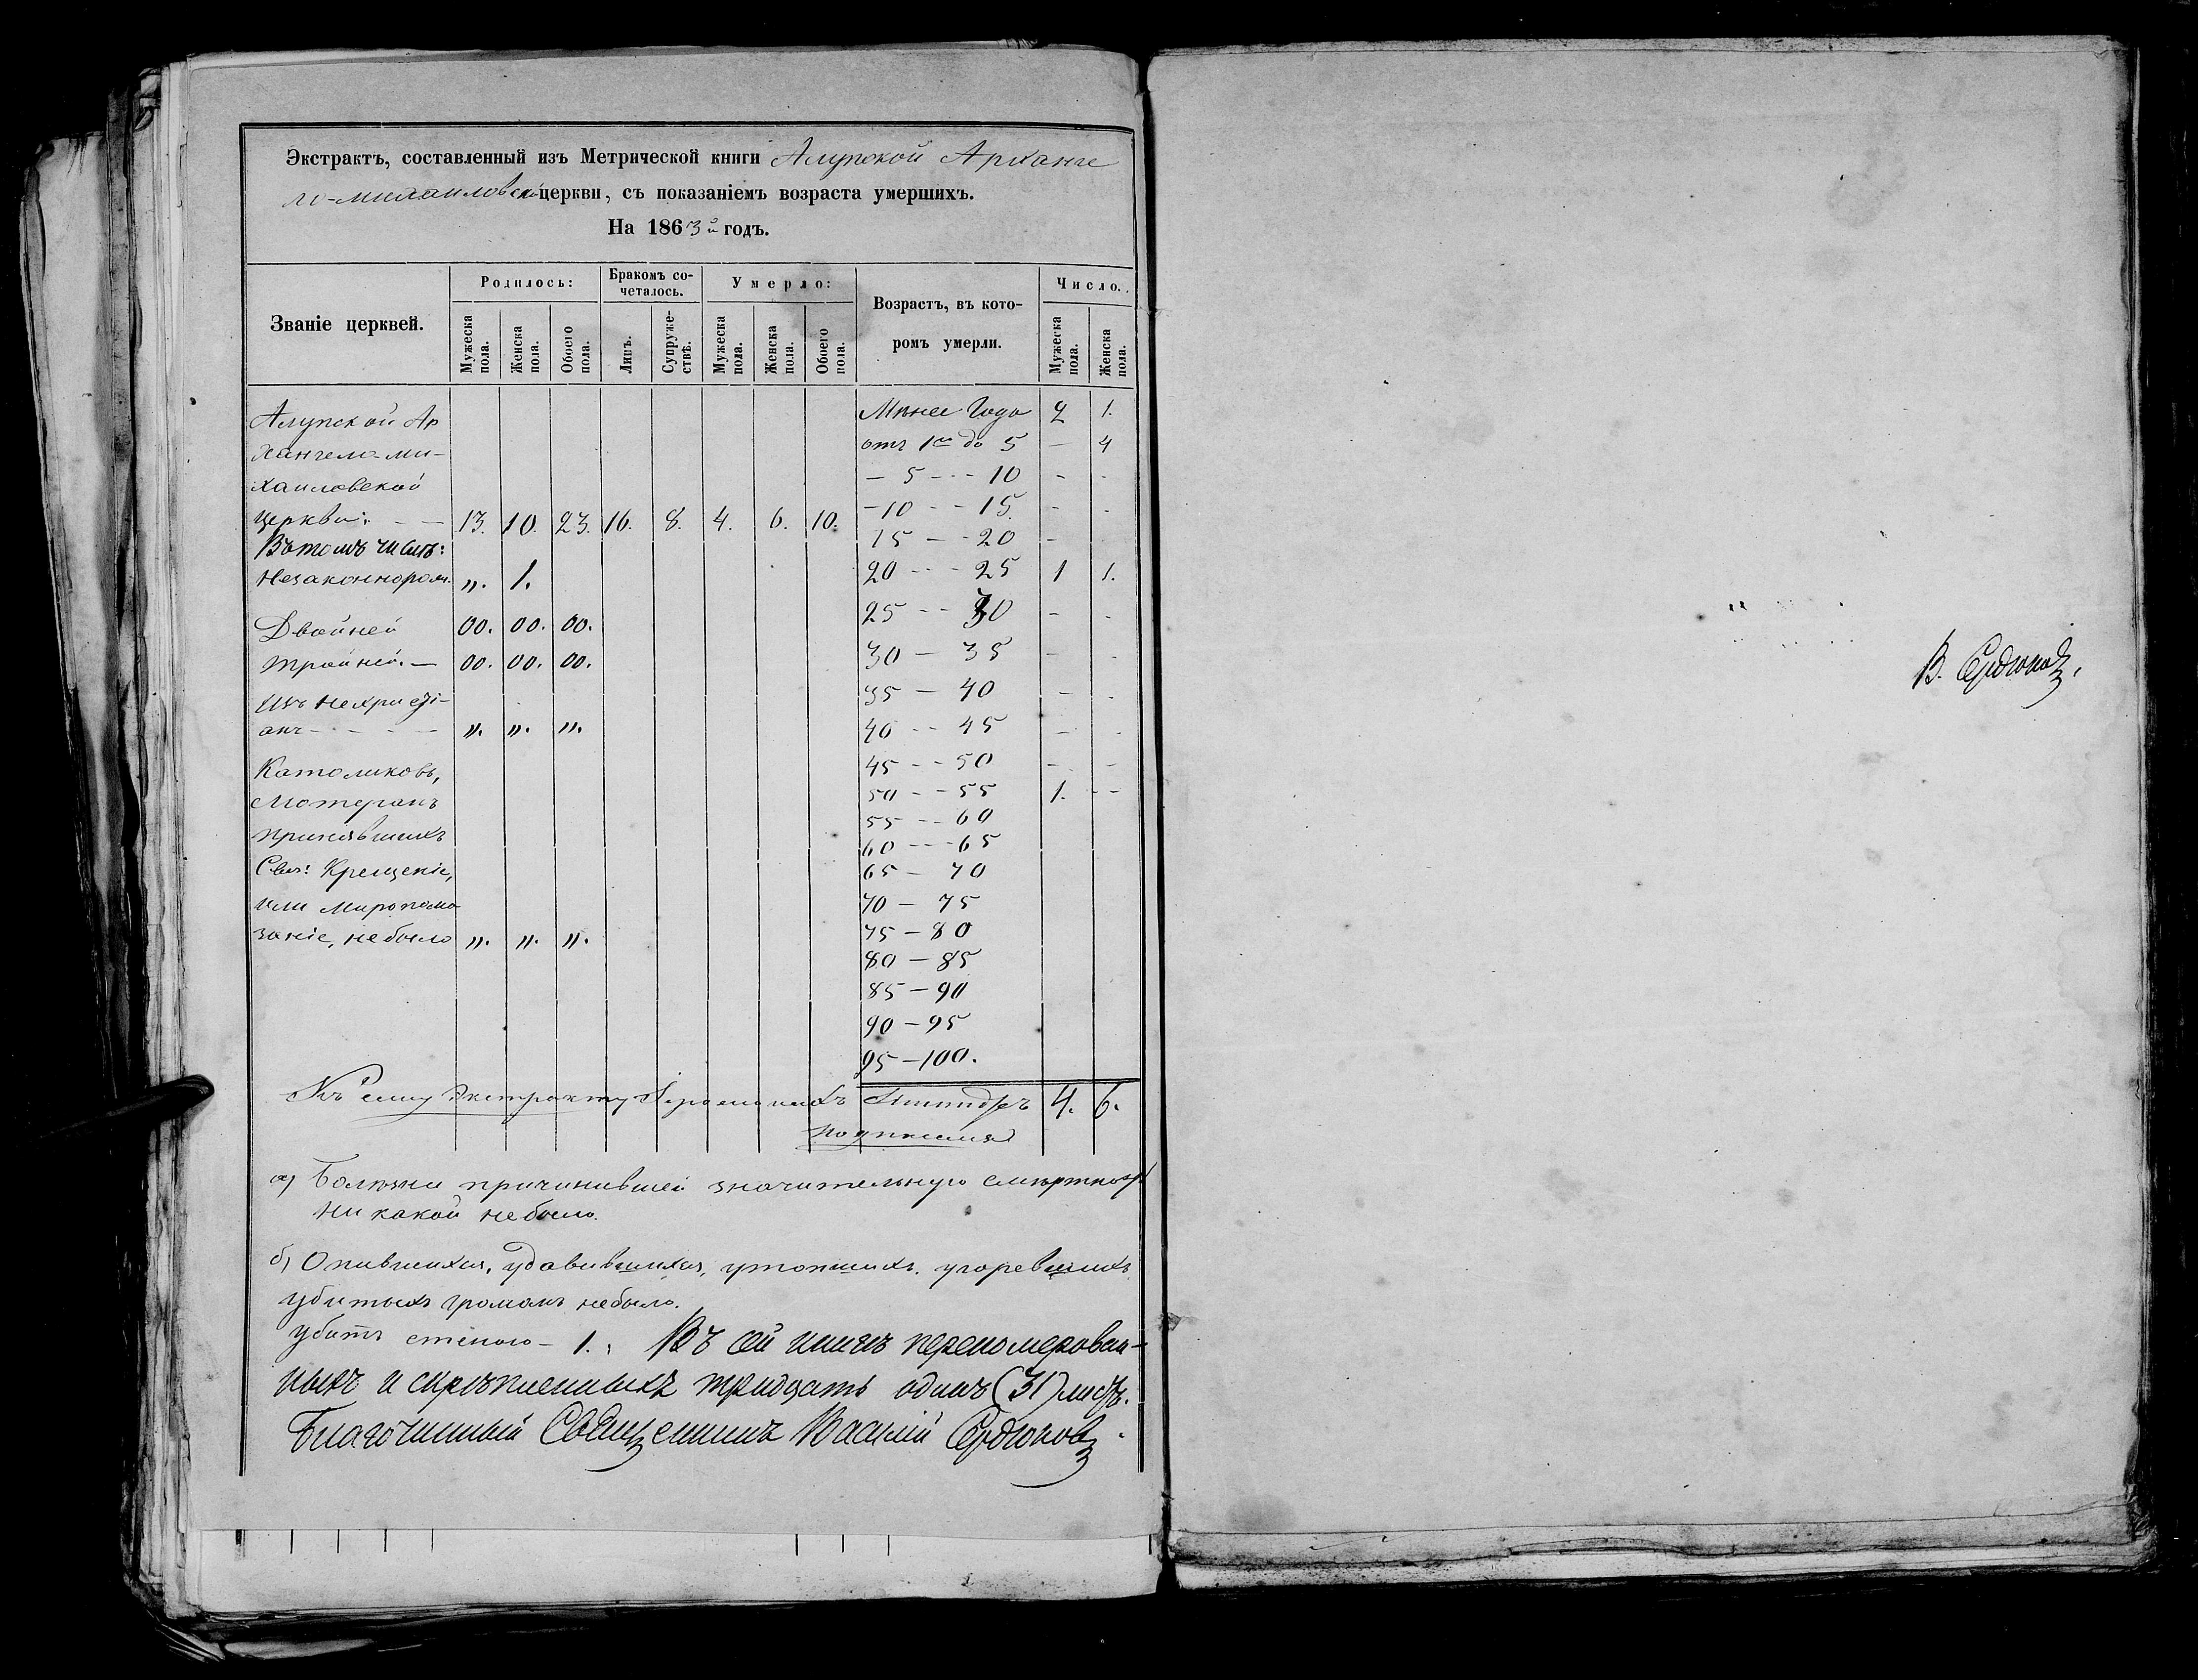 Экстрактъ, составленный изъ Метрической книги Алупской Арханге
ло-михаиловской церкви, съ показаніемъ возраста умершихъ.
На 1863й годъ.
Званіе церквей.
Родилось:
Мужеска пола.
Женска пола.
Обоего пола.
Бракомъ со-
четалось.
Лицъ.
Супруже-
ствъ.
Умерло:
Мужеска пола.
Женска пола.
Обоего пола.
Возрастъ, въ кото-
ромъ умерли.
Число.
Мужеска пола.
Женска пола.
Алупской Ар
хангело-ми-
хаиловской
церкви: - — 13. 10. 23. 16. 8. 4. 6. 10.
Въ томъ числѣ:
Незаконнорож. „. 1.
Двойней 00. 00. 00.
Тройней. — 00. 00. 00.
Изъ нехристі-
анъ - - - — „. „. „.
Католиковъ,
Лютеранъ
принявшихъ
Свят: Крещеніе,
или Миропома
заніе, небыло „. „. „.
Мѣнее Года 2 1.
отъ 1го до 5 — 4
— 5 - - - 10 - -
-10 - - 15. - -
15 — - 20 -
20 - - - 25 1 1.
25 - - 30 - -
30 — 35 - -
35 — 40 - -
40 - - 45 - -
45 - - 50 - -
50 - - 55 1. - -
55 - - 60
60 - - - 65
65 — 70
70 — 75
75 — 80
80 — 85
85 — 90
90 — 95
95 — 100.
4. 6.
Къ сему Экстракту Іеромонахъ
подписался
а) Болѣзни причинившей значительную смѣртность
ни какой небыло.
б) Опившихся, удавившихся, утопшихъ, угоревшихъ
убитыхъ громомъ небыло.
убитъ стѣною — 1. Въ сей книгѣ перепомерован-
ныхъ и скрѣпленныхъ тридцать одинъ (31) листъ.
Благочинный Священникъ Василій Сердюковъ.
В. Сердюковъ.